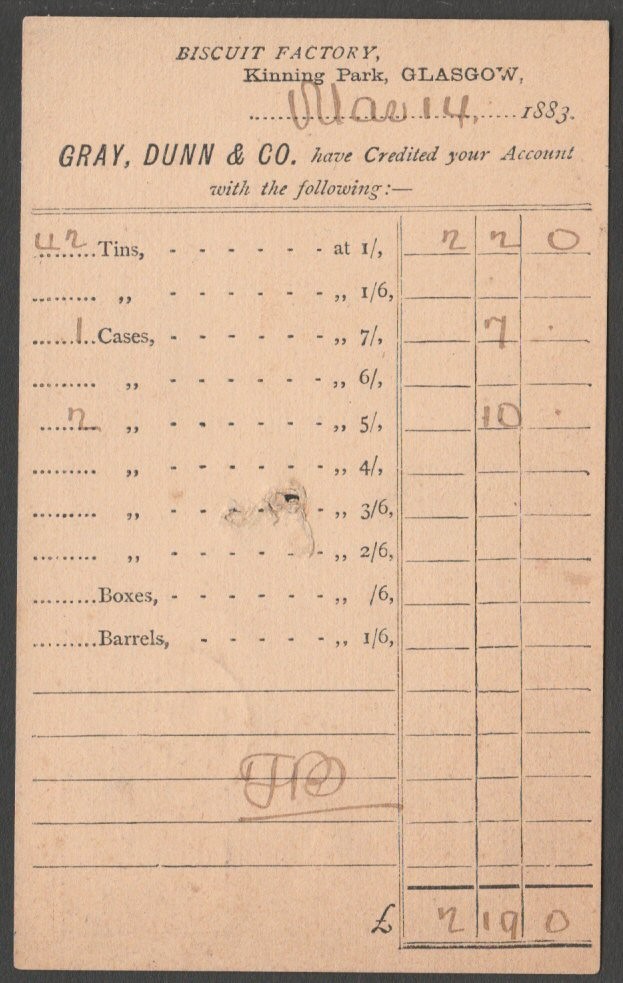 BISCUIT FACTORY,
Kinning Park, GLASGOW,
.......Mar 14,......1883.
GRAY, DUNN & CO. have Credited your Account
with the following:—
42 Tins, - - - - - - at 1/, 2 2 0
......... ,, - - - - - - ,, 1/6,
1 Cases, - - - - - - ,, 7/, 7 .
......... ,, - - - - - - ,, 6/,
2 ,, - - - - - - ,, 5/, 10 .
......... ,, - - - - - - ,, 4/,
......... ,, - - - - - - ,, 3/6,
......... ,, - - - - - - ,, 2/6,
.........Boxes, - - - - - - ,, /6,
.........Barrels, - - - - - ,, 1/6,
£ 2 19 0